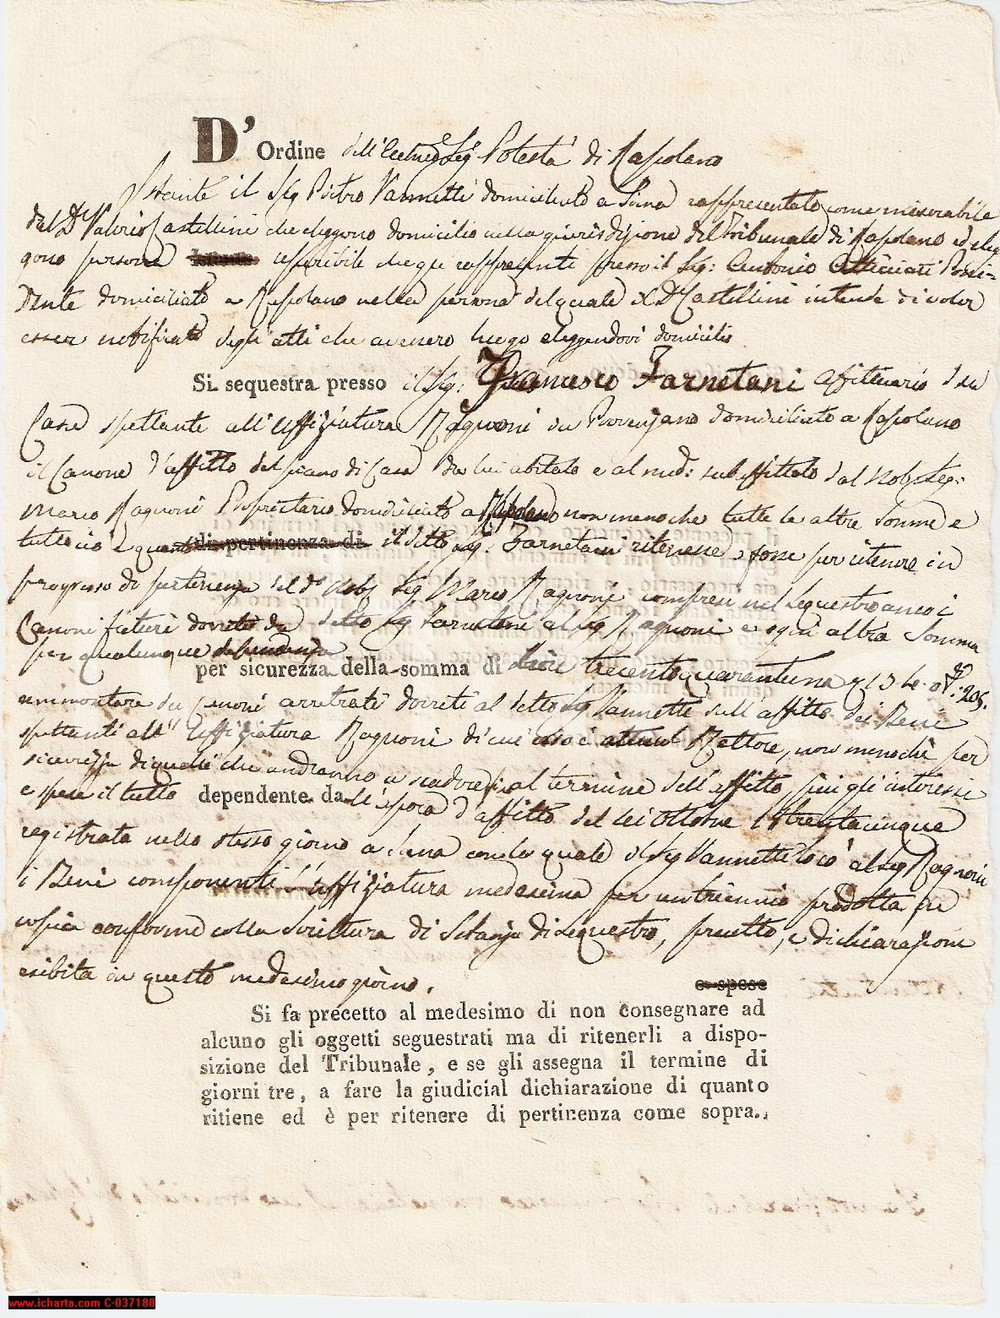 D' Ordine dell'Ecc.mo Sig.e Potestà di Rapolano
Istante il Sig Pietro Vannetti domiciliato a Siena rappresentato come miserabile
dal D. Valerio Castellini che eleggono domicilio nella giurisdizione del Tribunale di Rapolano ed eleg
gono persona reperibile che gli rappresenti presso il Sig: Antonio Possi-
dente domiciliato a Rapolano nella persona del quale il D. Castellini intende di voler
esser notificato degli atti che avranno luogo eleggendovi domicilio
Si sequestra presso il Sig: Francesco Farnetani affittuario d'una
Casa spettante all'Uffiziatura Ragnoni da Provenzano domiciliato a Rapolano
il Canone d'affitto del piano di Casa da lui abitato e al med: subaffittato dal Nob: Sig:
Marco Ragnoni Proprietario domiciliato a Rapolano non meno che tutte le altre somme e
tutto ciò e quanto di pertinenza di il detto Sig. Farnetani ritenesse e fosse per ritenere in
progresso di pertinenza del d.o Nob. Sig Marco Ragnoni compresi nel sequestro anco i
Canoni futuri dovuti da detto Sig Farnetani al Sig Ragnoni e ogni altra Somma
per qualunque dependenza
per sicurezza della somma di Lire trecentoquarantuna
ammontare di canoni arretrati dovuti al detto Sig Vannetti sull'affitto dei Beni
spettanti all'Uffiziatura Ragnoni di cui esso è attual Rettore, non menochè per
sicurezza di quelli che andranno a scadere al termine dell'affitto, più gli interessi
e spese il tutto dependente da l'apoca d'affitto del sei Ottobre 18trentacinque
registrata nello stesso giorno a Siena con la quale il Sig Vannetti locò al Sig Ragnoni
i Beni componenti l'uffiziatura medesima per un triennio prodotta in
copia conforme colla Scrittura di Istanza di sequestro, precetto, e dichiarazione
esibita in questo medesimo giorno.
e spese
Si fa precetto al medesimo di non consegnare ad
alcuno gli oggetti seguestrati ma di ritenerli a dispo-
sizione del Tribunale, e se gli assegna il termine di
giorni tre, a fare la giudicial dichiarazione di quanto
ritiene ed è per ritenere di pertinenza come sopra.
www.icharta.com C-037188